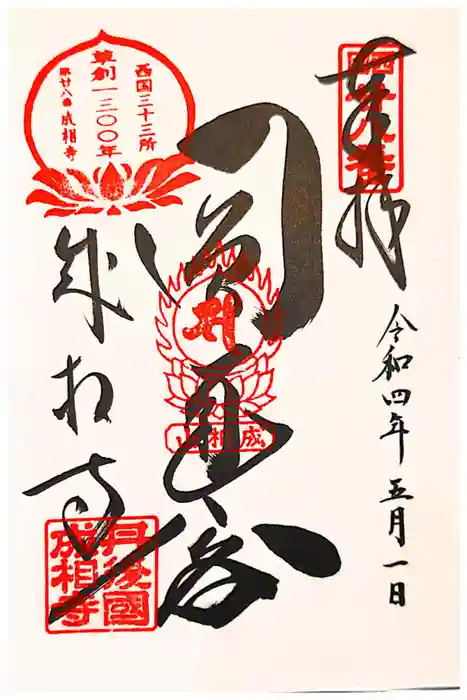 奉拝
西国廿八番
令和四年五月一日
圓通閣
成相山
西国三十三所
草創一三〇〇年
第廿八番 成相寺
成相寺
丹後國
成相寺